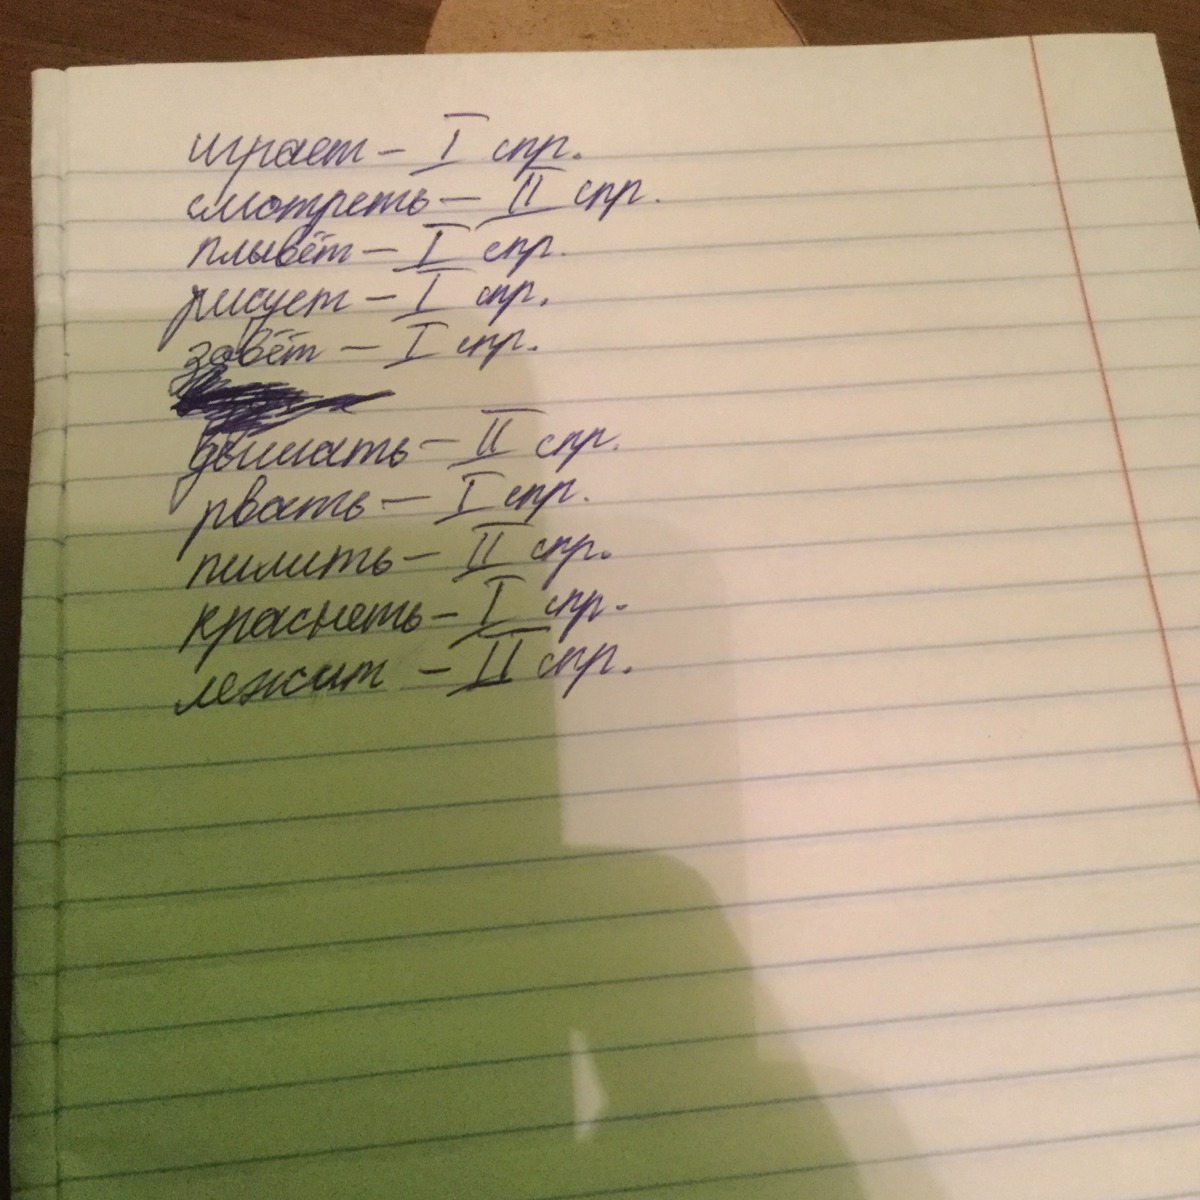 играет – I спр.
смотреть – II спр.
плывёт – I спр.
рисует – I спр.
зовёт – I спр.
дышать – II спр.
рвать – I спр.
пилить – II спр.
краснеть – I спр.
лежит – II спр.